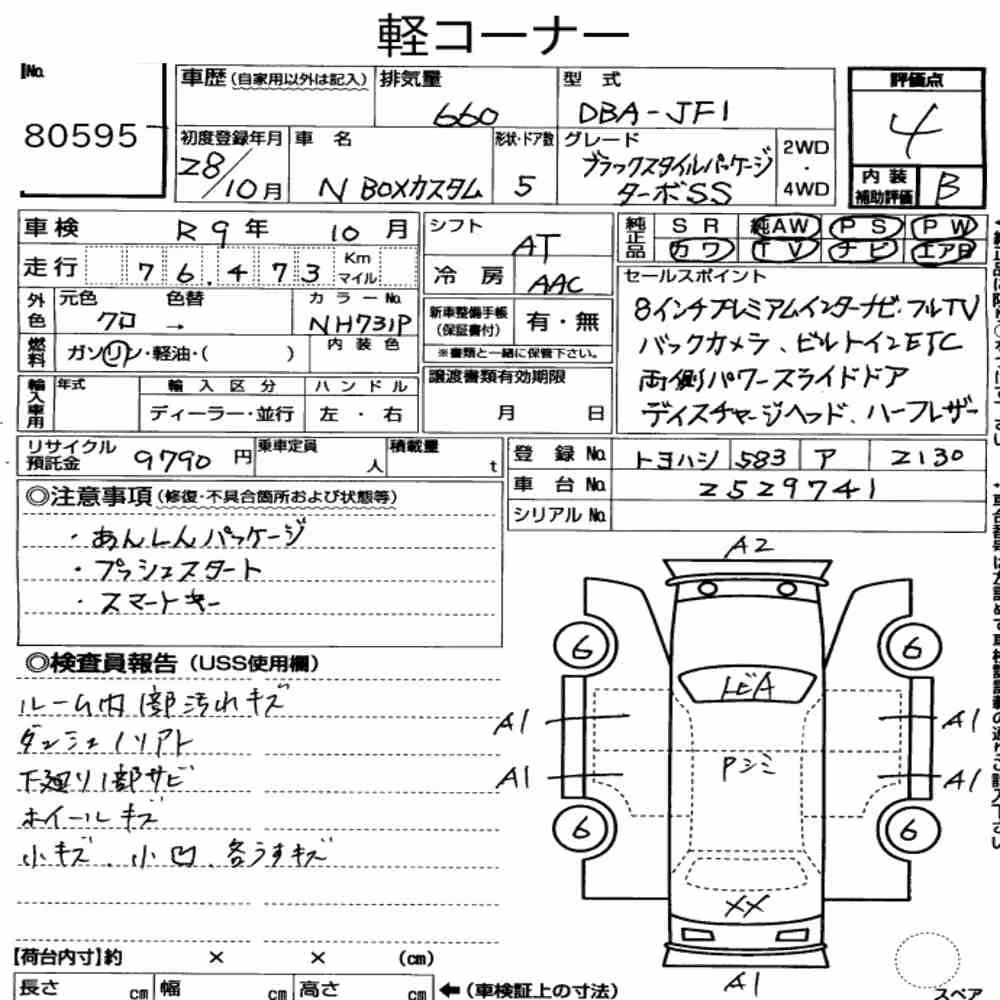 軽コーナー
No.
80595
車歴(自家用以外は記入)
排気量
660
型 式
DBA-JF1
評価点
4
内装補助評価
B
初度登録年月
28/10月
車 名
N BOXカスタム
形状・ドア数
5
グレード
ブラックスタイルパッケージ
ターボSS
2WD
・
4WD
車検
R9年 10月
走行
76.473
Km
マイル
外色
元色
クロ
色替
→
カラーNo.
NH731P
燃料
ガソリン・軽油・( )
内装色
輸入車用
年式
輸入区分
ディーラー・並行
ハンドル
左・右
シフト
AT
冷房
AAC
新車整備手帳
(保証書付)
有・無
※書類と一緒に保管下さい。
譲渡書類有効期限
月 日
純正品
SR 純AW PS PW
カワ TV ナビ エアB
セールスポイント
8インチプレミアムインターナビ・フルTV
バックカメラ、ビルトインETC
両側パワースライドドア
ディスチャージヘッド、ハーフレザー
リサイクル預託金
9790円
乗車定員
人
積載量
t
登録No.
トヨハシ 583 ア 2130
車台No.
2529741
シリアルNo.
◎注意事項(修復・不具合箇所および状態等)
・あんしんパッケージ
・プッシュスタート
・スマートキー
◎検査員報告(USS使用欄)
ルーム内1部汚れキズ
ダッシュノリアト
下廻り1部サビ
ホイールキズ
小キズ、小凹、各うすキズ
A2
6
6
トビA
A1
A1
Pシミ
A1
A1
6
6
XX
A1
スペア
【荷台内寸】約 × × (cm)
長さ cm 幅 cm 高さ cm
←(車検証上の寸法)